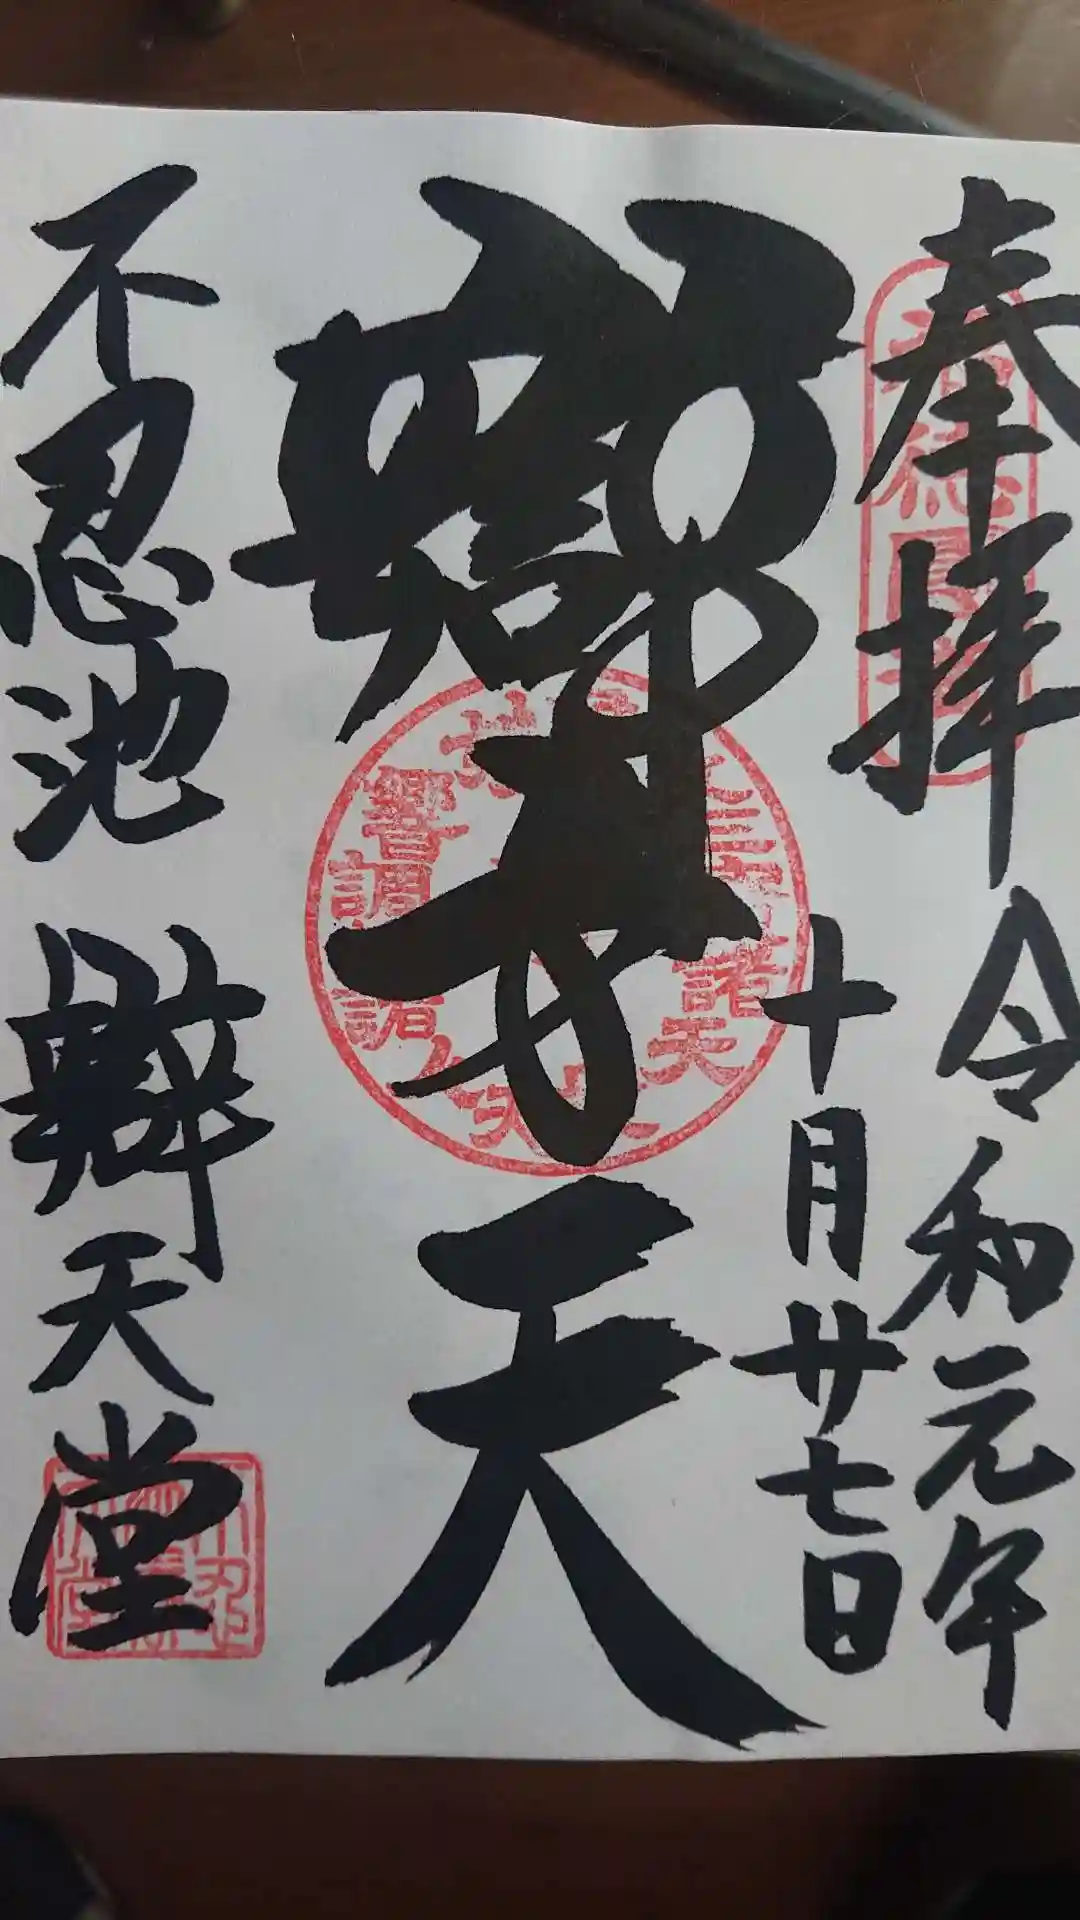 奉拝
令和元年
十月廿七日
辯才天
不忍池 辯天堂